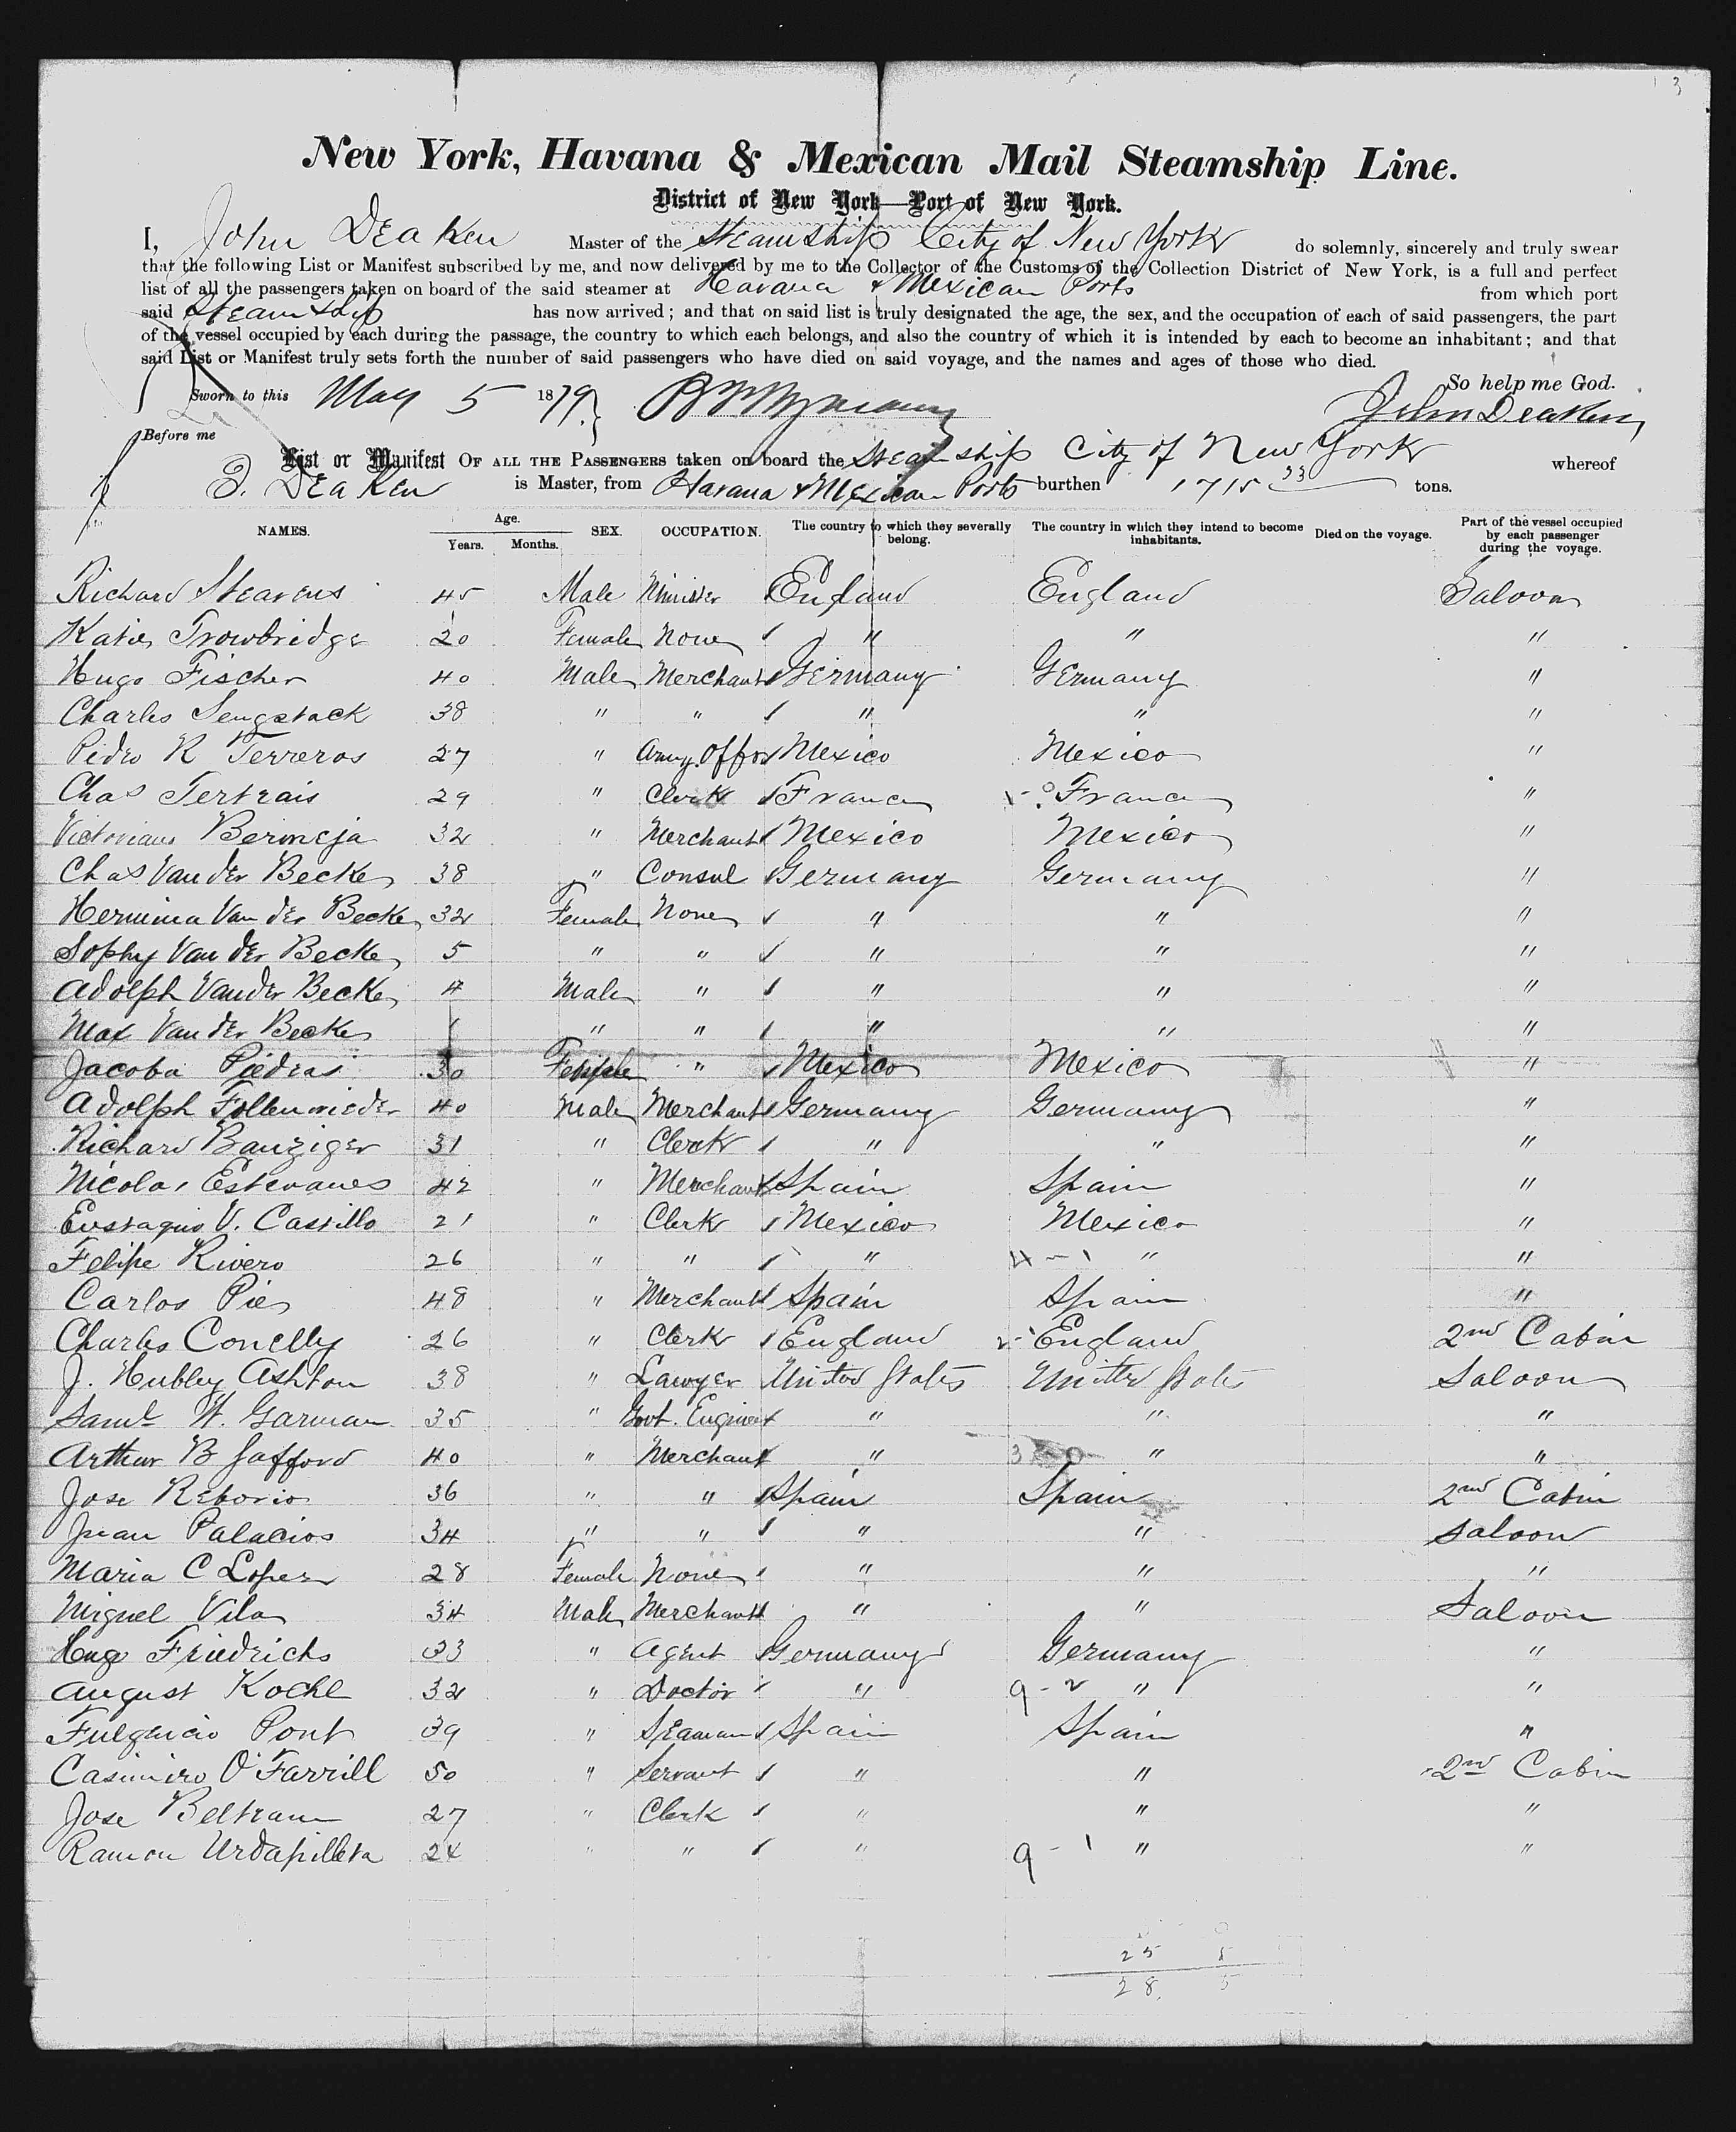 3
New York, Havana & Mexican Mail Steamship Line.
District of New York—Port of New York.
I, John Deaken Master of the Steamship City of New York do solemnly, sincerely and truly swear
that the following List or Manifest subscribed by me, and now delivered by me to the Collector of the Customs of the Collection District of New York, is a full and perfect
list of all the passengers taken on board of the said steamer at Havana & Mexican Ports from which port
said Steamship has now arrived; and that on said list is truly designated the age, the sex, and the occupation of each of said passengers, the part
of the vessel occupied by each during the passage, the country to which each belongs, and also the country of which it is intended by each to become an inhabitant; and that
said List or Manifest truly sets forth the number of said passengers who have died on said voyage, and the names and ages of those who died.
So help me God.
Sworn to this May 5 1879. John Deaken
Before me
List or Manifest OF ALL THE PASSENGERS taken on board the Steamship City of New York whereof
J. Deaken is Master, from Havana & Mexican Ports burthen 1715 33 tons.
NAMES. Age. Years. Months. SEX. OCCUPATION. The country to which they severally belong. The country in which they intend to become inhabitants. Died on the voyage. Part of the vessel occupied by each passenger during the voyage.
Richard Stearens 45 Male Minister England England Saloon
Katie Trowbridge 20 Female None " " "
Hugo Fischer 40 Male Merchant Germany Germany "
Charles Sengstack 38 " " " " "
Pedro R Terreros 27 " Army Offor Mexico Mexico "
Chas Tertrais 29 " Clerk France France "
Victoriano Bermeja 32 " Merchant Mexico Mexico "
Chas Van der Becke 38 " Consul Germany Germany "
Hermina Van der Becke 32 Female None " " "
Sophy Van der Becke 5 " " " " "
Adolph Van der Becke 4 Male " " " "
Max Van der Becke 1 " " " " "
Jacoba Piedras 30 Female " Mexico Mexico "
Adolph Follenvieder 40 Male Merchant Germany Germany "
Richard Banziger 31 " Clerk " " "
Nicolas Estevanes 42 " Merchant Spain Spain "
Eustaquio V. Castillo 21 " Clerk Mexico Mexico "
Felipe Rivero 26 " " " 4 - 1 " "
Carlos Pie 48 " Merchant Spain Spain "
Charles Conelly 26 " Clerk England England 2nd Cabin
J. Hubley Ashton 38 " Lawyer United States United States Saloon
Saml W. Garman 35 " Govt. Engineer " " "
Arthur B Safford 40 " Merchant " " "
Jose Reborio 36 " " Spain Spain 2nd Cabin
Juan Palacios 34 " " " " Saloon
Maria C Lopez 28 Female None " " "
Miguel Vila 34 Male Merchant " " Saloon
Hugo Friedrichs 33 " Agent Germany Germany "
August Kochl 32 " Doctor " 9 - 2 " "
Fulgencio Pont 39 " Seaman Spain Spain "
Casimiro O'Farrill 50 " Servant " " 2nd Cabin
Jose Beltram 27 " Clerk " " "
Ramon Urdapilleta 24 " " " 9 - 1 " "
25 5
28. 5